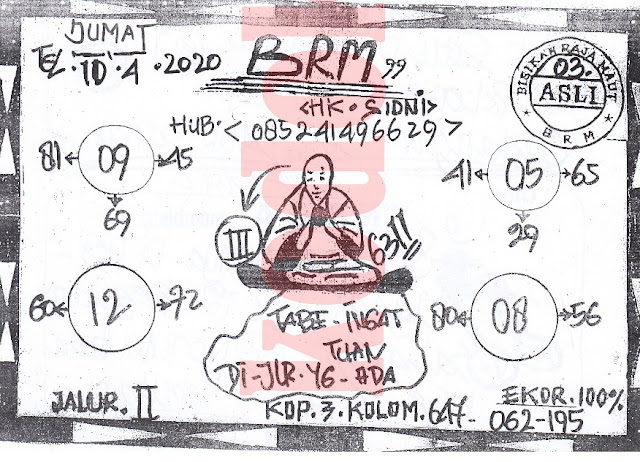 JUMAT
TGL. 10.4.2020
BRM 99
<HK. SIDNI>
HUB. < 085241496629 >
BISIKAN RAJA MAUT
03.
ASLI
BRM
81 09 45
69
41 05 65
29
III
63!!
60 12 72
80 08 56
TABE. INGAT
TUAN
DI-JLR. YG. ADA
JALUR. II
KOP. 3. KOLOM. 647.
EKOR. 100%
062-195